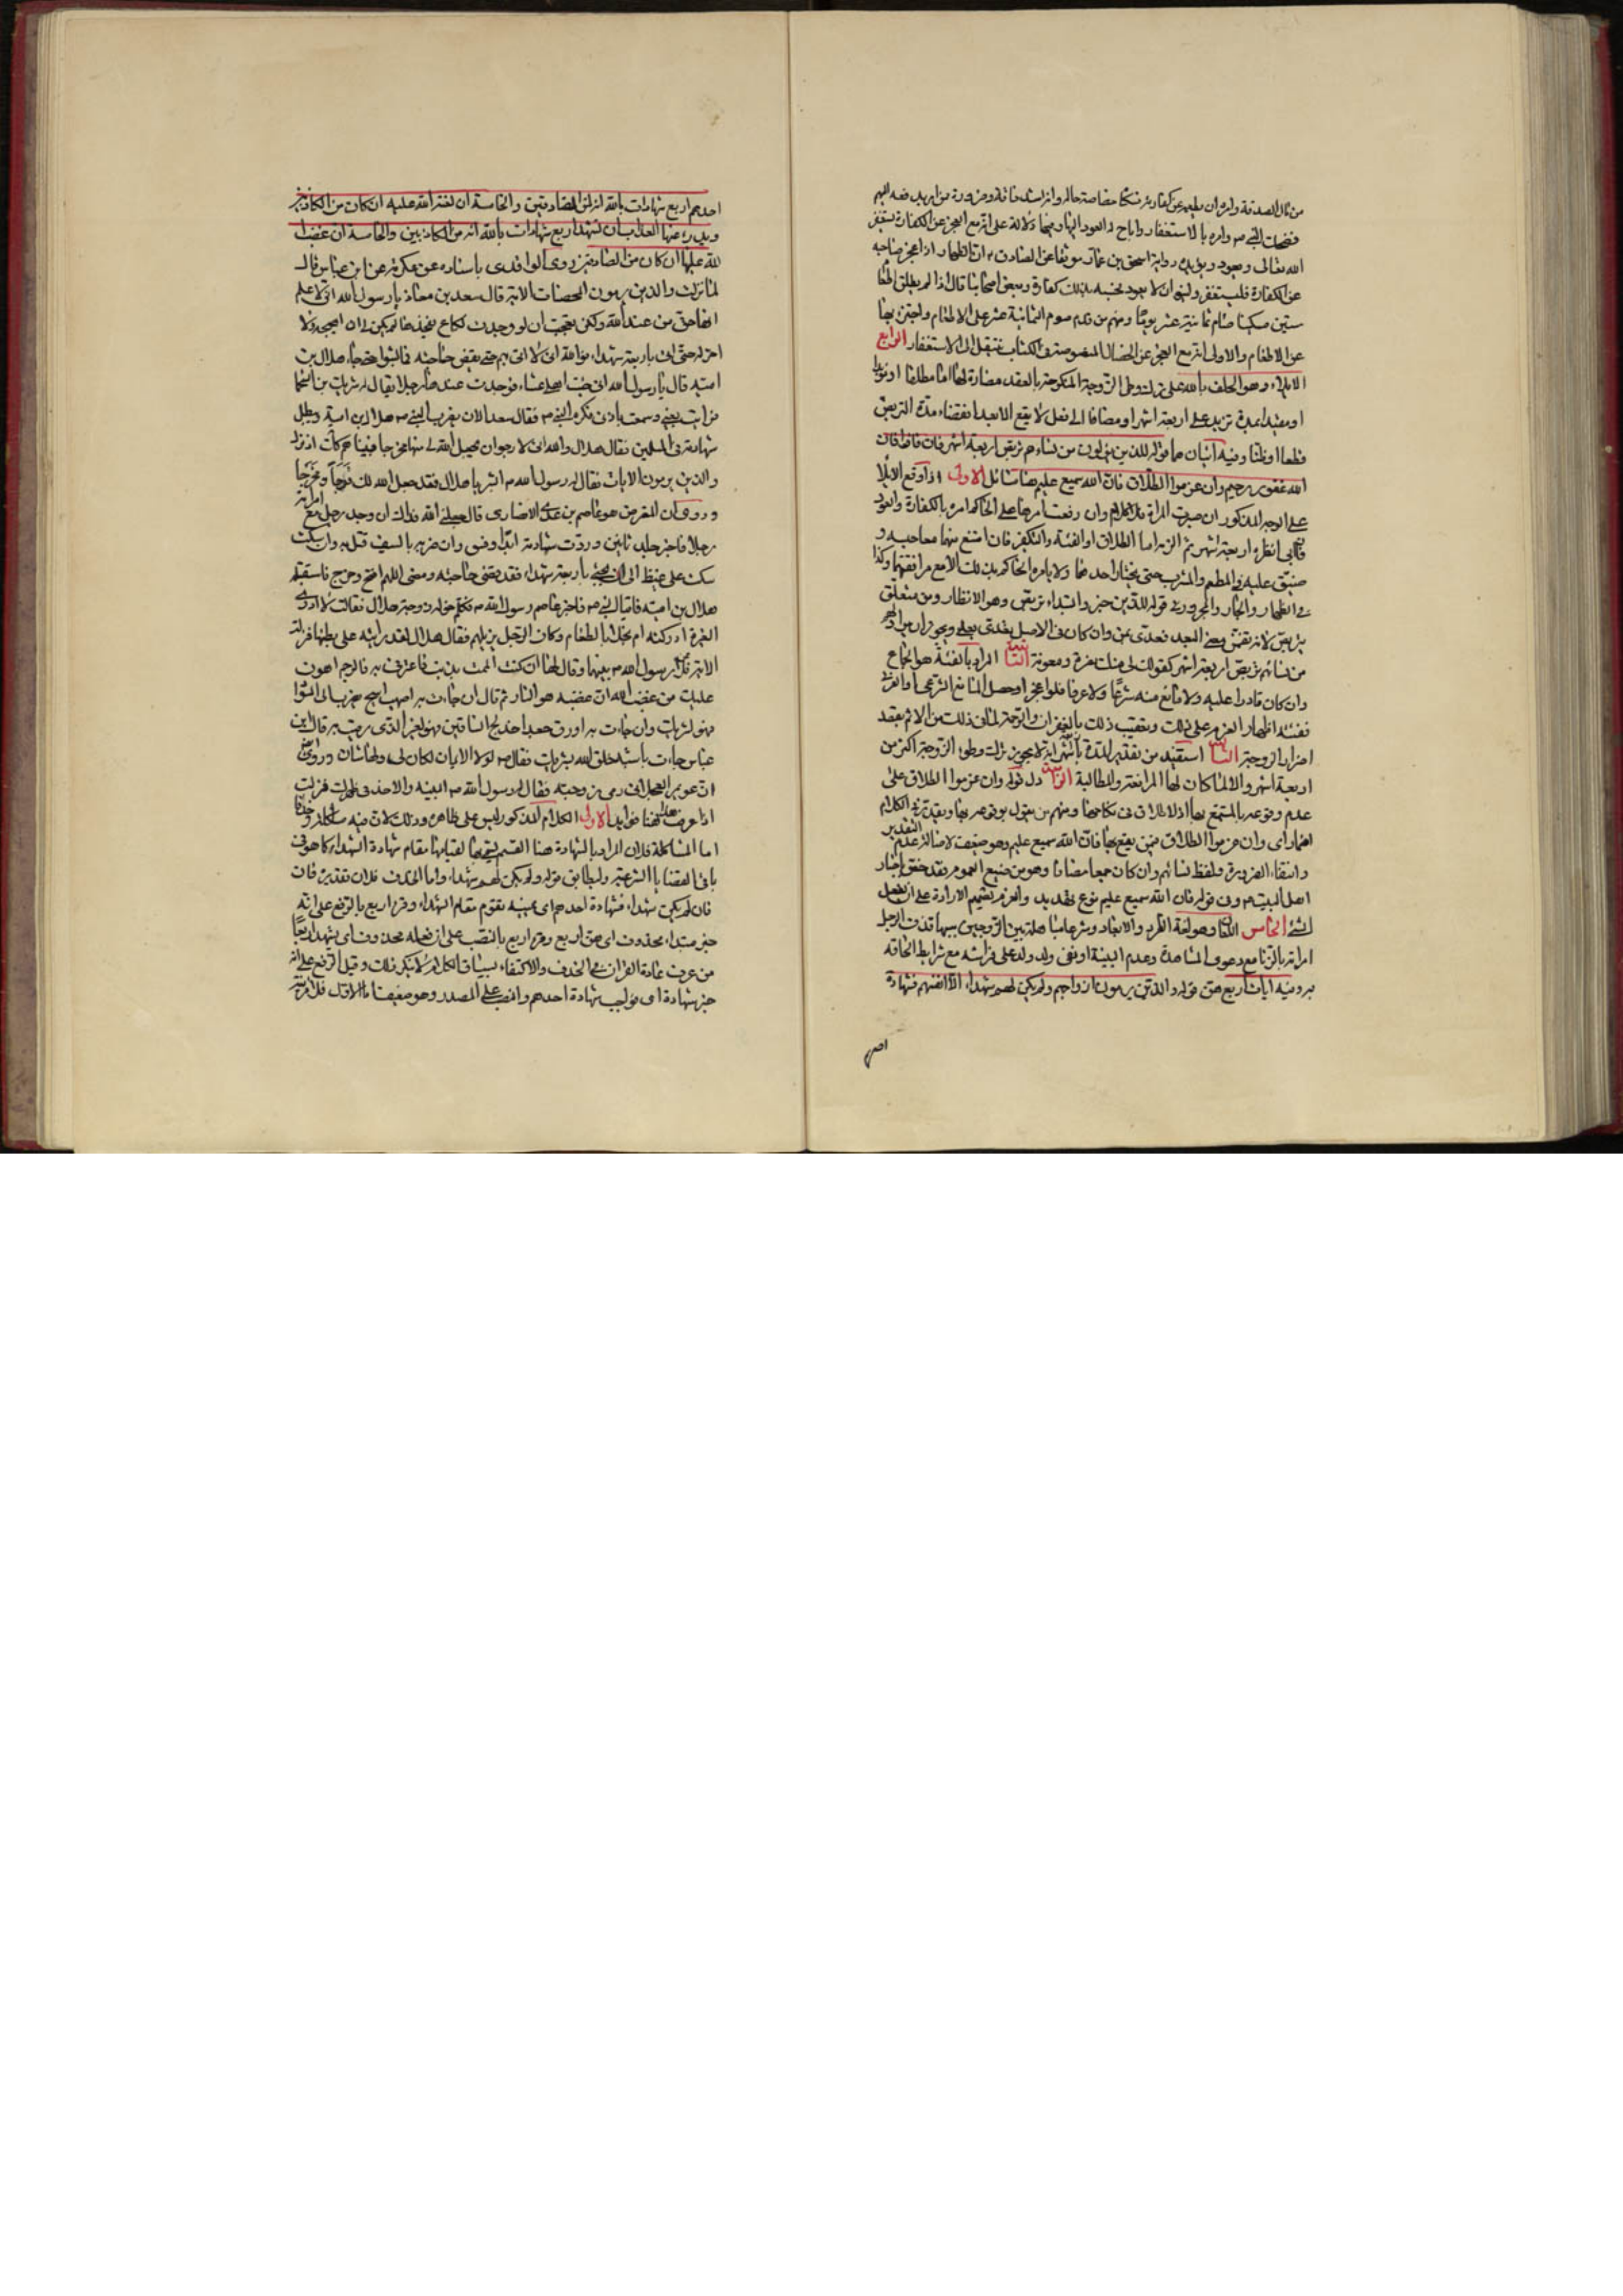 من مال الصدقة وامره ان يطعمه عن كفارته فشكا خصاصة حاله وانه اشد فاقة وضرورة ممن امر بدفعه اليهم
فضحك النبي ص وامره بالاستغفار واباح له العود اليها وفيها دلالة على انه مع العجز عن الكفارة يستغفر
الله تعالى ويعود ويؤيده رواية اسحق بن عمار موثقا عن الصادق ع ان الظهار اذا عجز صاحبه
عن الكفارة فليستغفر ولينو ان لا يعود فحسبه بذلك كفارة وبعض اصحابنا قال اذا لم يطق اطعام
ستين مسكينا صام ثمانية عشر يوما ومنهم من قدم صوم الثمانية عشر على الاطعام واجتزئ بها
عن الاطعام والاولى انه مع العجز عن الخصال المنصوصة في الكتاب ينتقل الى الاستغفار الرابع
الايلاء وهو الحلف بالله على ترك وطي الزوجة المنكوحة بالعقد مضارة لها اما مطلقا او مؤبدا
او مقيدا بمدة تزيد على اربعة اشهر او مضافا الى فعل لا يقع الا بعد انقضاء مدة التربص
قطعا او ظنا وفيه آيتان هما قوله للذين يؤلون من نسائهم تربص اربعة اشهر فان فاؤا فان
الله غفور رحيم وان عزموا الطلاق فان الله سميع عليم هنا مسائل الاولى اذا وقع الايلاء
على الوجه المذكور ان صبرت المراة فلا كلام وان رفعت امرها على الحاكم امره بالكفارة والعود
فان ابى انظره اربعة اشهر ثم الزمه اما الطلاق او الفئة والتكفير فان امتنع منهما معا حبسه و
ضيق عليه في المطعم والمشرب حتى يختار احدهما ولا يامره الحاكم بذلك الا مع مرافعتها وكذا
في الظهار والجار والمجرور في قوله للذين خبر والمبتداء تربص وهو الانتظار ومن متعلق
بتربص لانه يتضمن معنى البعد فعدى بمن وان كان في الاصل يعدى بعلى ويجوز ان يراد لهم
من نسائهم تربص اربعة اشهر كقولك لي منك نصرة ومعونة الثانية المراد بالفئة هو الجماع
وان كان قادرا عليه ولا مانع منه شرعا ولا عرفا فلو عجز او حصل المانع الشرعي او العرفي
ففئته اظهار العزم على ذلك وتعقيب ذلك بالغفران والرحمة لما في ذلك من الاثم بقصد
اضرار الزوجة الثالثة استفيد من تقدير المدة باربعة اشهر انه لا يجوز ترك وطي الزوجة اكثر من
اربعة اشهر والا لما كان لها المرافعة والمطالبة الرابعة دل قوله وان عزموا الطلاق على
عدم وقوعه بالمتمتع بها اذ لا طلاق في نكاحها ومنهم من يقول بوقوعه بها ويقدر في الكلام
اضمار اى وان عزموا الطلاق فيمن يقع بها فان الله سميع عليم وهو ضعيف لاصالة عدم التقدير
وانتفاء الضرورة ولفظ نسائهم وان كان جمعا مضافا وهو من صيغ العموم فقد خصص باخبار
اهل البيت ع وفي قوله فان الله سميع عليم نوع تهديد والعزم تصميم الارادة على ان يفعل
الشئ الخامس اللعان وهو لغة الطرد والابعاد وشرعا مباهلة بين الزوجين سببها قذف الرجل
امراته بالزنا مع دعوى المشاهدة وعدم البينة او نفى ولد ولد على فراشه مع شرايط الحاقه
به وفيه ايات اربع هى قوله والذين يرمون ازواجهم ولم يكن لهم شهداء الا انفسهم فشهادة
احدهم
احدهم اربع شهادات بالله انه لمن الصادقين والخامسة ان لعنة الله عليه ان كان من الكاذبين
ويدرء عنها العذاب ان تشهد اربع شهادات بالله انه من الكاذبين والخامسة ان غضب
الله عليها ان كان من الصادقين روى الواقدى باسناده عن عكرمة عن ابن عباس قال
لما نزلت والذين يرمون المحصنات الاية قال سعد بن معاذ يا رسول الله انى لاعلم
انها حق من عند الله ولكن تعجبت ان لو وجدت لكاع يفخذها لم يكن لى ان اهيجه ولا
احركه حتى اتى باربعة شهداء فوالله انى لا اتى بهم حتى يقضى حاجته فما لبثوا حتى جاء هلال بن
امية قال يا رسول الله انى جئت اهلى عشاء فوجدت عندها رجلا يقال له شريك بن السحما
فرايت بعينى وسمعت باذنى فكره النبي ص فقال سعد الان يضرب النبي ص هلال بن امية ويبطل
شهادته في المسلمين فقال هلال والله انى لارجو ان يجعل الله لى منها مخرجا فبينا هم كذلك اذ نزل
والذين يرمون الايات فقال له رسول الله ص ابشر يا هلال فقد جعل الله لك فرجا ومخرجا
وروى ان المعترض هو عاصم بن عدى الانصارى قال جعلنى الله فداك ان وجد رجل مع امراته
رجلا فاخبر جلد ثمانين وردت شهادته ابدا وفسق وان ضربه بالسيف قتل به وان سكت
سكت على غيظ الى ان يجئ باربعة شهداء فقد قضى حاجته ومضى اللهم افتح وخرج فاستقبله
هلال بن امية فاتيا النبي ص فاخبر عاصم رسول الله ص فكلم خولة زوجة هلال فقالت لا ادرى
الغيرة ادركته ام بخلا بالطعام وكان الرجل نزيلهم فقال هلال لقد رايته على بطنها فنزلت
الاية فلاعن رسول الله ص بينهما وقال لها ان كنت الممت بذنب فاعترفى به فالرجم اهون
عليك من غضب الله ان غضبه هو النار ثم قال ان جاءت به اصهب اثيبج يضرب الى السواد
فهو لشريك وان جاءت به اورق جعدا خدلج الساقين فهو لغير الذى رميت به قال ابن
عباس جاءت باشبه خلق الله بشريك فقال ص لولا الايمان لكان لى ولها شان وروى
ان عويمر العجلانى رمى زوجته فقال له رسول الله ص البينة والا حد في ظهرك فنزلت
اذا عرفت هذا فهنا فوايد الاولى الكلام المذكور ليس على ظاهره وذلك لان فيه مشاكلة وحذفا
اما المشاكلة فلان المراد بالشهادة هنا القسم لقيامها مقام شهادة الشهداء كما هو في
باقى القضايا الشرعية وليطابق قوله ولم يكن لهم شهداء واما الحذف فلان تقديره فان
فان لم يكن شهداء فشهادة احدهم اى يمينه تقوم مقام الشهداء وقرء اربع بالرفع على انه
خبر مبتداء محذوف اى هى اربع وقرء اربع بالنصب على ان فعله محذوف اى يشهد اربعا
من عرف عادة القران في الحذف والاكتفاء بسياق الكلام لا ينكر ذلك وقيل الرفع على انه
خبر شهادة اى فواجب شهادة احدهم والنصب على المصدر وهو ضعيف اما الاول فلان